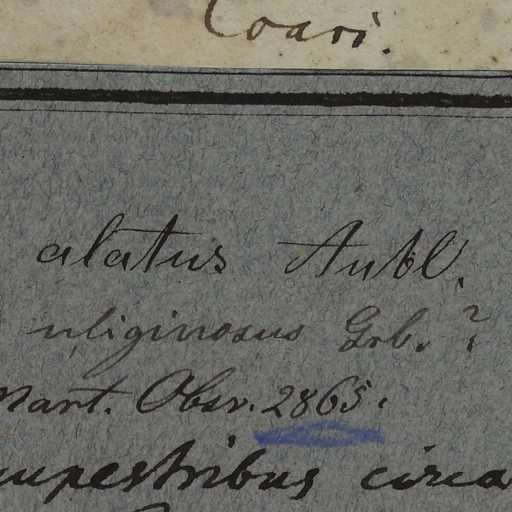 Coari.
alatus Aubl.
uliginosus Grb. ?
Mart. Obsr. 2865.
rupestribus circa